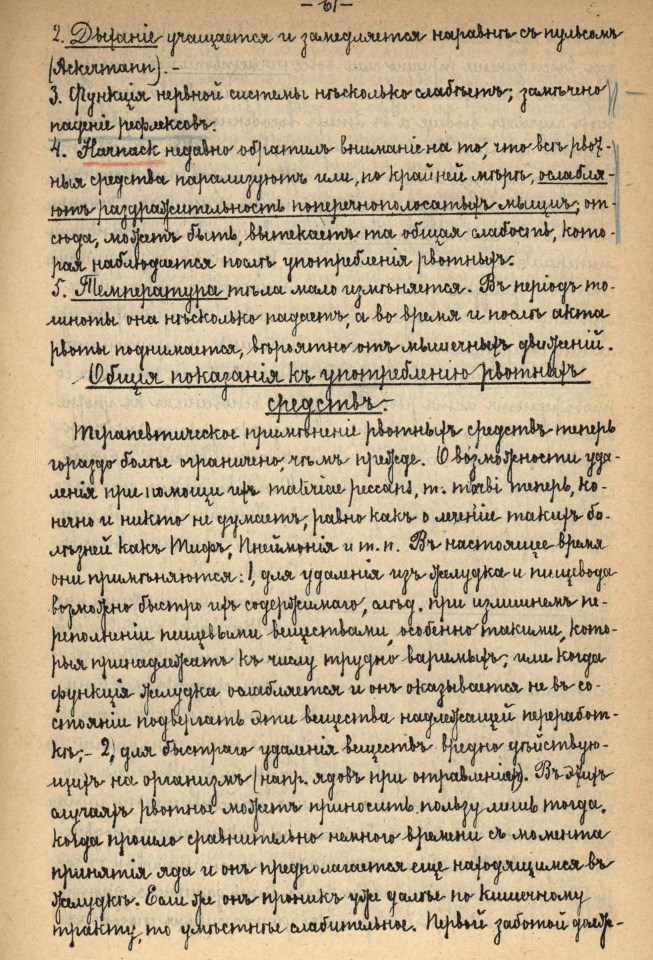 — 61 —
2. Дыханіе учащается и замедляется наравнѣ съ пульсомъ
(Ackermann). –
3. Функція нервной системы нѣсколько слабѣетъ; замѣчено
паденіе рефлексовъ.
4. Harnack недавно обратилъ вниманіе на то, что всѣ рвот-
ныя средства парализуютъ или, по крайней мѣрѣ, ослабля-
ютъ раздражительность поперечнополосатыхъ мышцъ; от-
сюда, можетъ быть, вытекаетъ та общая слабость, кото-
рая наблюдается послѣ употребленія рвотныхъ.
5. Температура тѣла мало измѣняется. Въ періодъ то-
шноты она нѣсколько падаетъ, а во время и послѣ акта
рвоты поднимается, вѣроятно отъ мышечныхъ движеній.
Общія показанія къ употребленію рвотныхъ
средствъ.
Терапевтическое примѣненіе рвотныхъ средствъ теперь
гораздо болѣе ограничено, чѣмъ прежде. О возможности уда-
ленія при помощи ихъ materiae peccans, m. morbi теперь, ко-
нечно и никто не думаетъ, равно какъ о леченіе такихъ бо-
лѣзней какъ Тифъ, Пнеймонія и т. п. Въ настоящее время
они примѣняются: 1, для удаленія изъ желудка и пищевода
возможно быстро ихъ содержимаго, слѣд. при излишнемъ пе-
реполненіи пищевыми веществами, особенно такими, кото-
рыя принадлежатъ къ числу трудно варимыхъ; или когда
функція желудка ослабляется и онъ оказывается не въ со-
стояніи подвергать эти вещества надлежащей переработ-
кѣ; – 2, для быстраго удаленія веществъ вредно дѣйствую-
щихъ на организмъ (напр. ядовъ при отравленіях). Въ этихъ
случаяхъ рвотное можетъ приносить пользу лишь тогда,
когда прошло сравнительно немного времени съ момента
принятія яда и онъ предполагается еще находящимся въ
желудкѣ. Если же онъ проникъ уже далѣе по кишечному
тракту, то умѣстнѣе слабительное. Первой заботой долж-